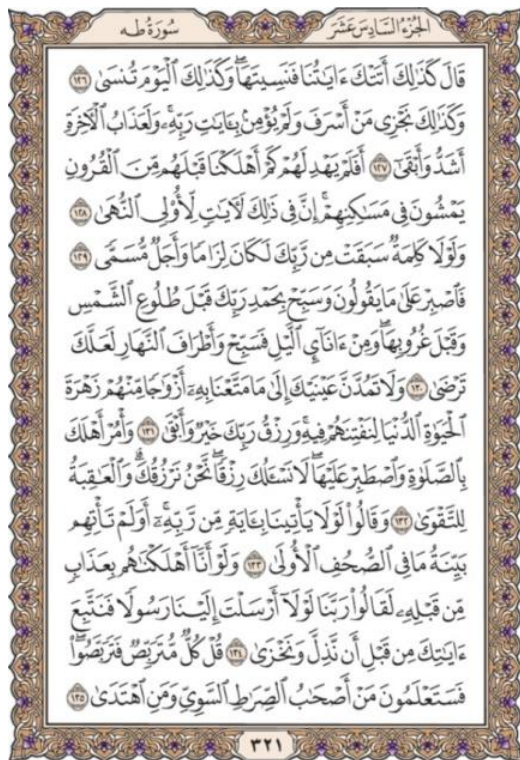 الجزء السادس عشر سورة طه
قَالَ كَذَٰلِكَ أَتَتْكَ ءَايَٰتُنَا فَنَسِيتَهَاۖ وَكَذَٰلِكَ ٱلْيَوْمَ تُنسَىٰ ١٢٦
وَكَذَٰلِكَ نَجْزِى مَنْ أَسْرَفَ وَلَمْ يُؤْمِنۢ بِـَٔايَٰتِ رَبِّهِۦۚ وَلَعَذَابُ ٱلْـَٔاخِرَةِ
أَشَدُّ وَأَبْقَىٰٓ ١٢٧ أَفَلَمْ يَهْدِ لَهُمْ كَمْ أَهْلَكْنَا قَبْلَهُم مِّنَ ٱلْقُرُونِ
يَمْشُونَ فِى مَسَٰكِنِهِمْۗ إِنَّ فِى ذَٰلِكَ لَـَٔايَٰتٍ لِّأُو۟لِى ٱلنُّهَىٰ ١٢٨
وَلَوْلَا كَلِمَةٌ سَبَقَتْ مِن رَّبِّكَ لَكَانَ لِزَامًا وَأَجَلٌ مُّسَمًّى ١٢٩
فَٱصْبِرْ عَلَىٰ مَا يَقُولُونَ وَسَبِّحْ بِحَمْدِ رَبِّكَ قَبْلَ طُلُوعِ ٱلشَّمْسِ
وَقَبْلَ غُرُوبِهَاۖ وَمِنْ ءَانَآئِ ٱلَّيْلِ فَسَبِّحْ وَأَطْرَافَ ٱلنَّهَارِ لَعَلَّكَ
تَرْضَىٰ ١٣٠ وَلَا تَمُدَّنَّ عَيْنَيْكَ إِلَىٰ مَا مَتَّعْنَا بِهِۦٓ أَزْوَٰجًا مِّنْهُمْ زَهْرَةَ
ٱلْحَيَوٰةِ ٱلدُّنْيَا لِنَفْتِنَهُمْ فِيهِۚ وَرِزْقُ رَبِّكَ خَيْرٌ وَأَبْقَىٰ ١٣١ وَأْمُرْ أَهْلَكَ
بِٱلصَّلَوٰةِ وَٱصْطَبِرْ عَلَيْهَاۖ لَا نَسْـَٔلُكَ رِزْقًاۖ نَّحْنُ نَرْزُقُكَۗ وَٱلْعَٰقِبَةُ
لِلتَّقْوَىٰ ١٣٢ وَقَالُوا۟ لَوْلَا يَأْتِينَا بِـَٔايَةٍ مِّن رَّبِّهِۦٓۚ أَوَلَمْ تَأْتِهِم
بَيِّنَةُ مَا فِى ٱلصُّحُفِ ٱلْأُولَىٰ ١٣٣ وَلَوْ أَنَّآ أَهْلَكْنَٰهُم بِعَذَابٍ
مِّن قَبْلِهِۦ لَقَالُوا۟ رَبَّنَا لَوْلَآ أَرْسَلْتَ إِلَيْنَا رَسُولًا فَنَتَّبِعَ
ءَايَٰتِكَ مِن قَبْلِ أَن نَّذِلَّ وَنَخْزَىٰ ١٣٤ قُلْ كُلٌّ مُّتَرَبِّصٌ فَتَرَبَّصُوا۟ۖ
فَسَتَعْلَمُونَ مَنْ أَصْحَٰبُ ٱلصِّرَٰطِ ٱلسَّوِىِّ وَمَنِ ٱهْتَدَىٰ ١٣٥
٣٢١